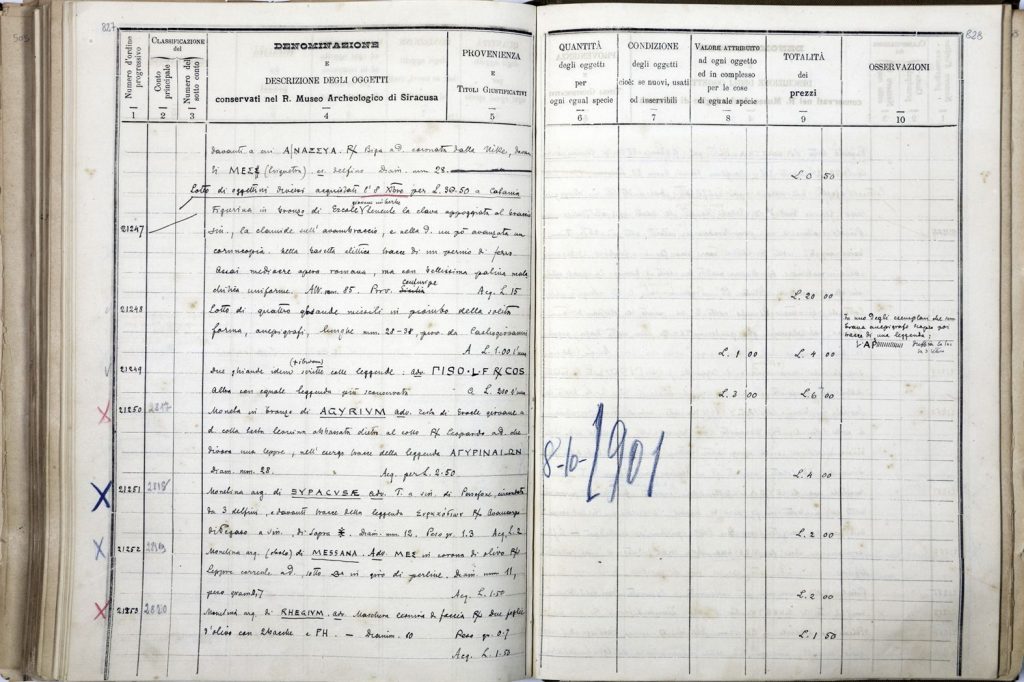 827
828
Numero d'ordine progressivo
CLASSIFICAZIONE
del
Conto principale
Numero del sotto conto
DENOMINAZIONE
E
DESCRIZIONE DEGLI OGGETTI
conservati nel R. Museo Archeologico di Siracusa
PROVENIENZA
E
TITOLI GIUSTIFICATIVI
QUANTITÀ
degli oggetti
per
ogni egual specie
CONDIZIONE
degli oggetti
cioè: se nuovi, usati
od inservibili
VALORE ATTRIBUITO
ad ogni oggetto
ed in complesso
per le cose
di eguale specie
TOTALITÀ
dei
prezzi
OSSERVAZIONI
1 2 3 4 5 6 7 8 9 10
davanti a cui ΑΝΑΞΕΥΑ. R/ Biga a d. coronata dalla Nike, davan
ti ΜΕΣΣ delfino Diam. mm 28.
L. 0 50
Lotto di oggettini diversi acquistati l'8 Xbre per L. 36-50 a Catania
giovane imberbe
21247 Figurina in bronzo di Ercole tenente la clava appoggiata al braccio
sin., la clamide sull'avambraccio, e nella d. un pò avanzata un
cornucopia. Nella basetta ellittica tracce di un pernio di ferro.
Assai mediocre opera romana, ma con bellissima patina mala
chitica uniforme. Alt. mm. 85. Prov. Centuripe Acq. L. 15
L. 20 00
21248 Lotto di quattro ghiande missili in piombo della solita
forma, anepigrafi, lunghe mm. 28-38, prov. da Castrogiovanni
A L. 1.00 l'una
L. 1 00 L. 4 00
In uno degli esemplari che sem
brava anepigrafo
tracce di una leggenda;
21249 Due ghiande idem scritte colle leggende: adv. ΓISO·L·F R/ COS
Altra con eguale leggenda più sconservata a L. 2.00 l'una
L. 3 00 L. 6 00
21250 2817 Moneta in bronzo di AGYRIVM adv. Testa di Ercole giovane a
d. colla testa leonina abbassata dietro al collo R/ Leopardo a d. che
divora una lepre, nell'exergo tracce della leggenda ΑΓΥΡΙΝΑΙΩΝ
Diam. mm. 28. Acq. per L. 2.50
L. 4 00
8-10-1901
21251 2818 Monetina arg. di SYPACVSÆ adv. T. a sin. di Persefone, circondata
da 3 delfini, e davanti tracce della leggenda R/
di Pegaso a sin., di sopra ✳. Diam. mm 12. Peso gr. 1.3 Acq. L. 2
L. 2 00
21252 2819 Monetina arg. (obolo) di MESSANA. Adv. ΜΕΣ in corona di olivo R/
Lepre corrente a d., sotto in giro di perline. Diam. mm 11,
peso grammi 7 Acq. L. 1.50
L. 2 00
21253 2820 Monetina arg. di RHEGIVM. adv. Maschera leonina di faccia R/ Due foglie
d'olivo con 2 bacche e ΡΗ. — Diamm. 10 Peso gr. 0.7
Acq. L. 1.50
L. 1 50